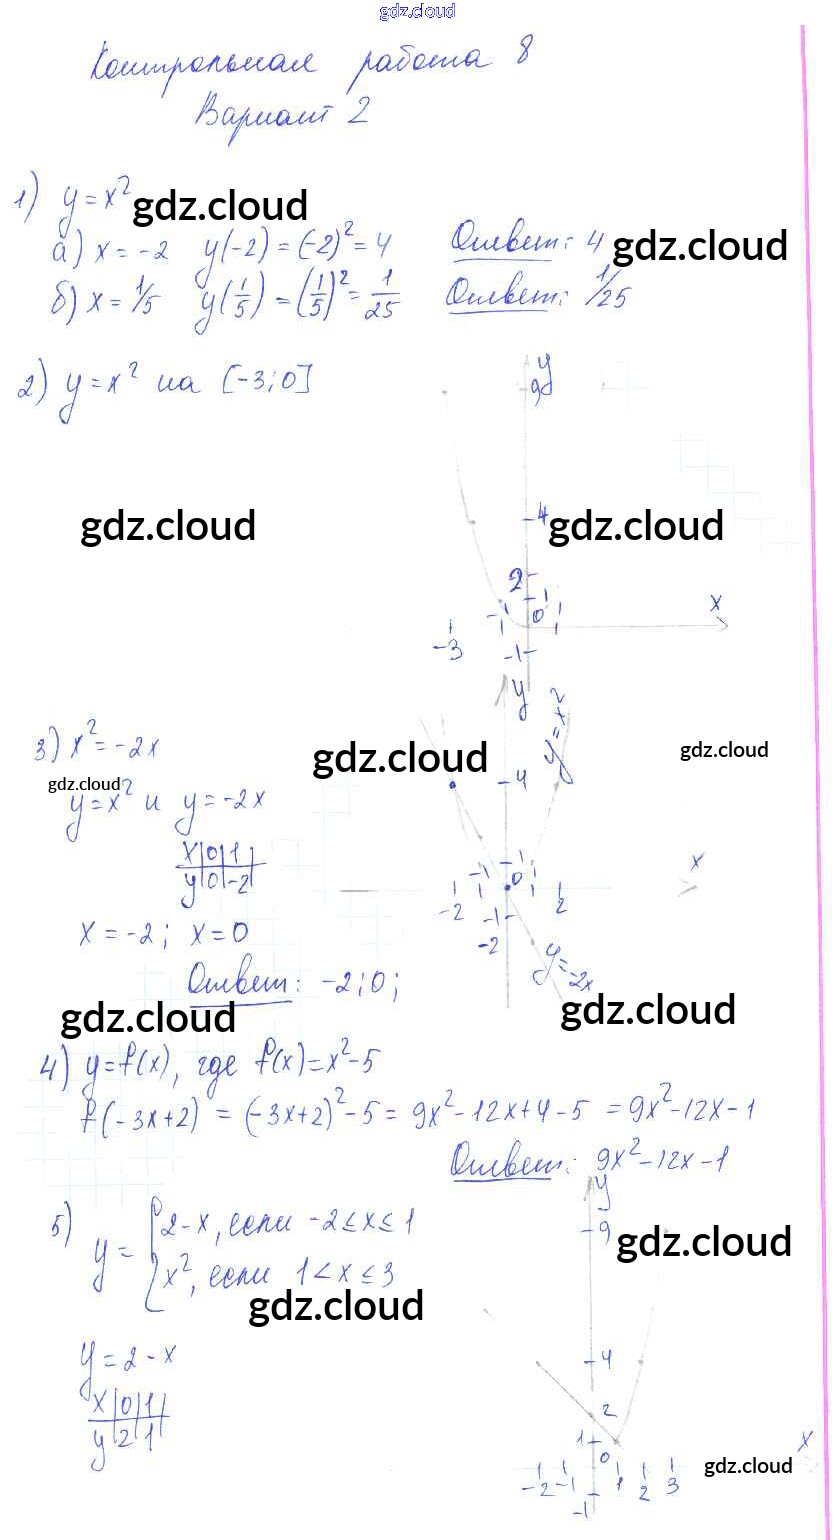 gdz.cloud
Контрольная работа 8
Вариант 2
1) y = x²
gdz.cloud
а) x = -2 y(-2) = (-2)² = 4 Ответ: 4
gdz.cloud
б) x = 1/5 y(1/5) = (1/5)² = 1/25 Ответ: 1/25
2) y = x² на [-3; 0]
y
9
gdz.cloud
4
gdz.cloud
2
1
x
-3 -1 0 1
-1
y
y = x²
3) x² = -2x
gdz.cloud
gdz.cloud
4
gdz.cloud
y = x² и y = -2x
x 0 1
y 0 -2
x
1
-2 -1 0 1 2
-1
-2
y = -2x
x = -2; x = 0
Ответ: -2; 0;
gdz.cloud
gdz.cloud
4) y = f(x), где f(x) = x² - 5
f(-3x+2) = (-3x+2)² - 5 = 9x² - 12x + 4 - 5 = 9x² - 12x - 1
Ответ: 9x² - 12x - 1
5) y = { 2 - x, если -2 ≤ x ≤ 1
x², если 1 < x ≤ 3
gdz.cloud
gdz.cloud
y = 2 - x
x 0 1
y 2 1
y
9
4
2
1
x
gdz.cloud
-2 -1 0 1 2 3
-1